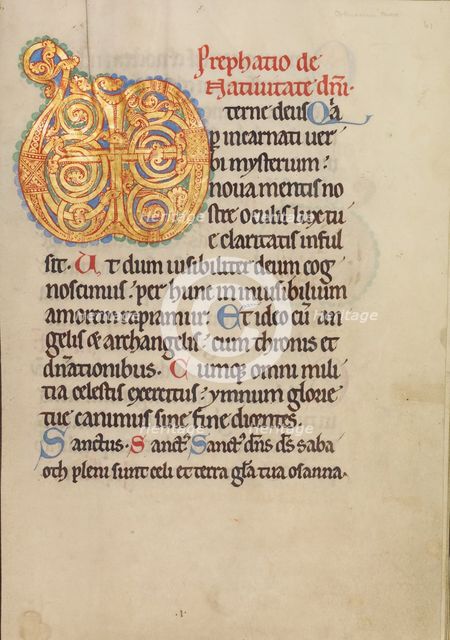 Prephatio de
Natiuitate dñi.
terne deus Qa
p incarnati uer
bi mysterium:
noua mentis no
stre oculis lux tu
e claritatis inful
sit. Ut dum uisibiliter deum cog
noscimus: per hunc in inuisibilium
amorem rapiamur. Et ideo cū an
gelis & archangelis: cum thronis et
dñationibus. Cumq; omni mili
tia celestis exercitus: ymnum glorie
tue canimus sine fine dicentes.
Sanctus. Sanct; Sanct; dñs ds saba
oth pleni sunt celi et terra gła tua osanna.
Heritage